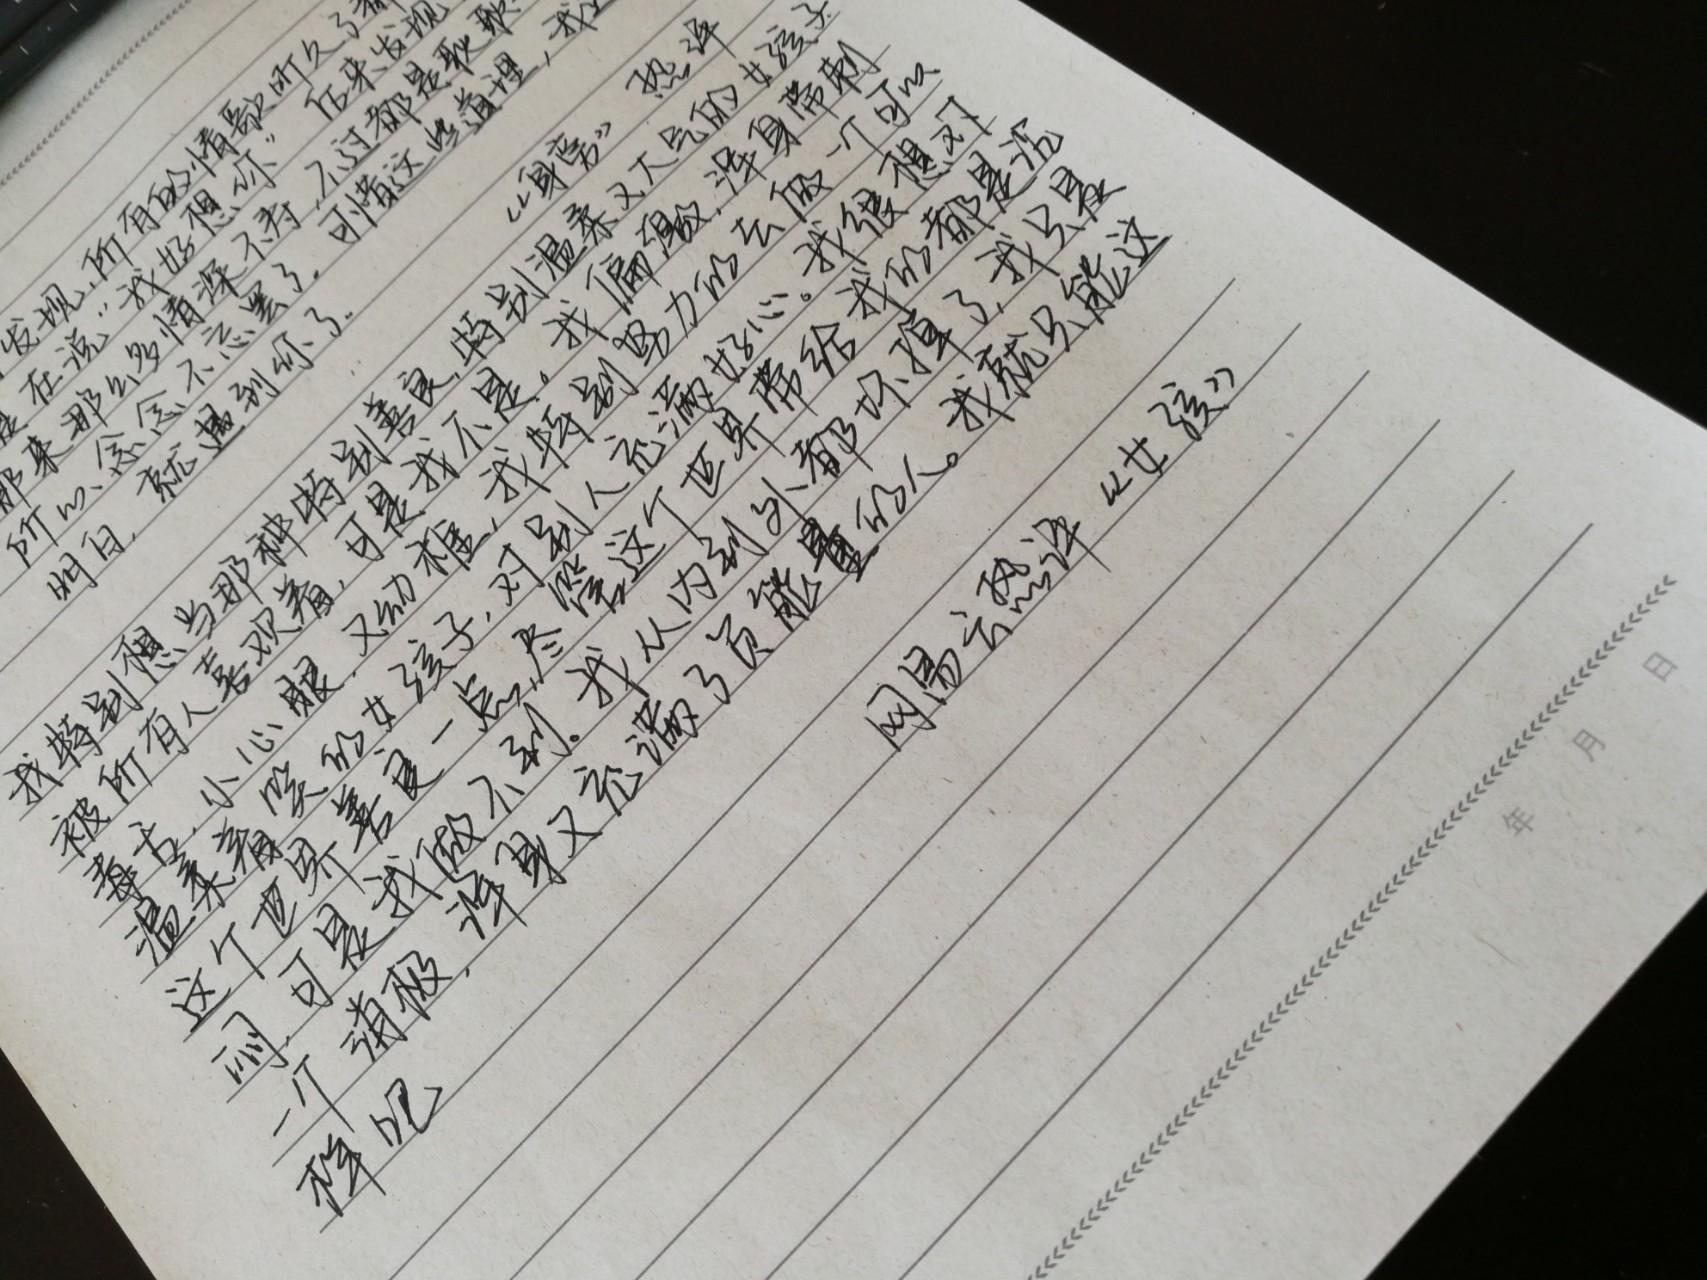 发现，所有的情歌听久了都
在说“我好想你” 后来发现
那来那么多情深不寿，不过都是耿耿
所以念念不忘罢了。可惜这些道理，我
明白，就遇到你了。
《身旁》 热评
我特别想当那种特别善良，特别温柔又人气的女孩子
被所有人喜欢着，可是我不是。我偏激，浑身带刺
毒舌，小心眼，又幼稚，我特别努力的去做一个可以
温柔着 的女孩子，对别人充满好心。我很想对
这个世界善良一点，尽管这个世界带给我的都是沉
闷，可是我做不到。我从内到外都坏掉了，我只是
一个消极，浑身又充满了负能量的人。我就只能这
样吧
网易云热评《女孩》
年 月 日